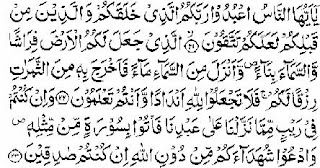 يَٰٓأَيُّهَا ٱلنَّاسُ ٱعْبُدُوا۟ رَبَّكُمُ ٱلَّذِى خَلَقَكُمْ وَٱلَّذِينَ مِن
قَبْلِكُمْ لَعَلَّكُمْ تَتَّقُونَ ﴿٢١﴾ ٱلَّذِى جَعَلَ لَكُمُ ٱلْأَرْضَ فِرَٰشًا
وَٱلسَّمَآءَ بِنَآءً وَأَنزَلَ مِنَ ٱلسَّمَآءِ مَآءً فَأَخْرَجَ بِهِۦ مِنَ ٱلثَّمَرَٰتِ
رِزْقًا لَّكُمْ فَلَا تَجْعَلُوا۟ لِلَّهِ أَندَادًا وَأَنتُمْ تَعْلَمُونَ ﴿٢٢﴾ وَإِن كُنتُمْ
فِى رَيْبٍ مِّمَّا نَزَّلْنَا عَلَىٰ عَبْدِنَا فَأْتُوا۟ بِسُورَةٍ مِّن مِّثْلِهِۦ
وَٱدْعُوا۟ شُهَدَآءَكُم مِّن دُونِ ٱللَّهِ إِن كُنتُمْ صَٰدِقِينَ ﴿٢٣﴾